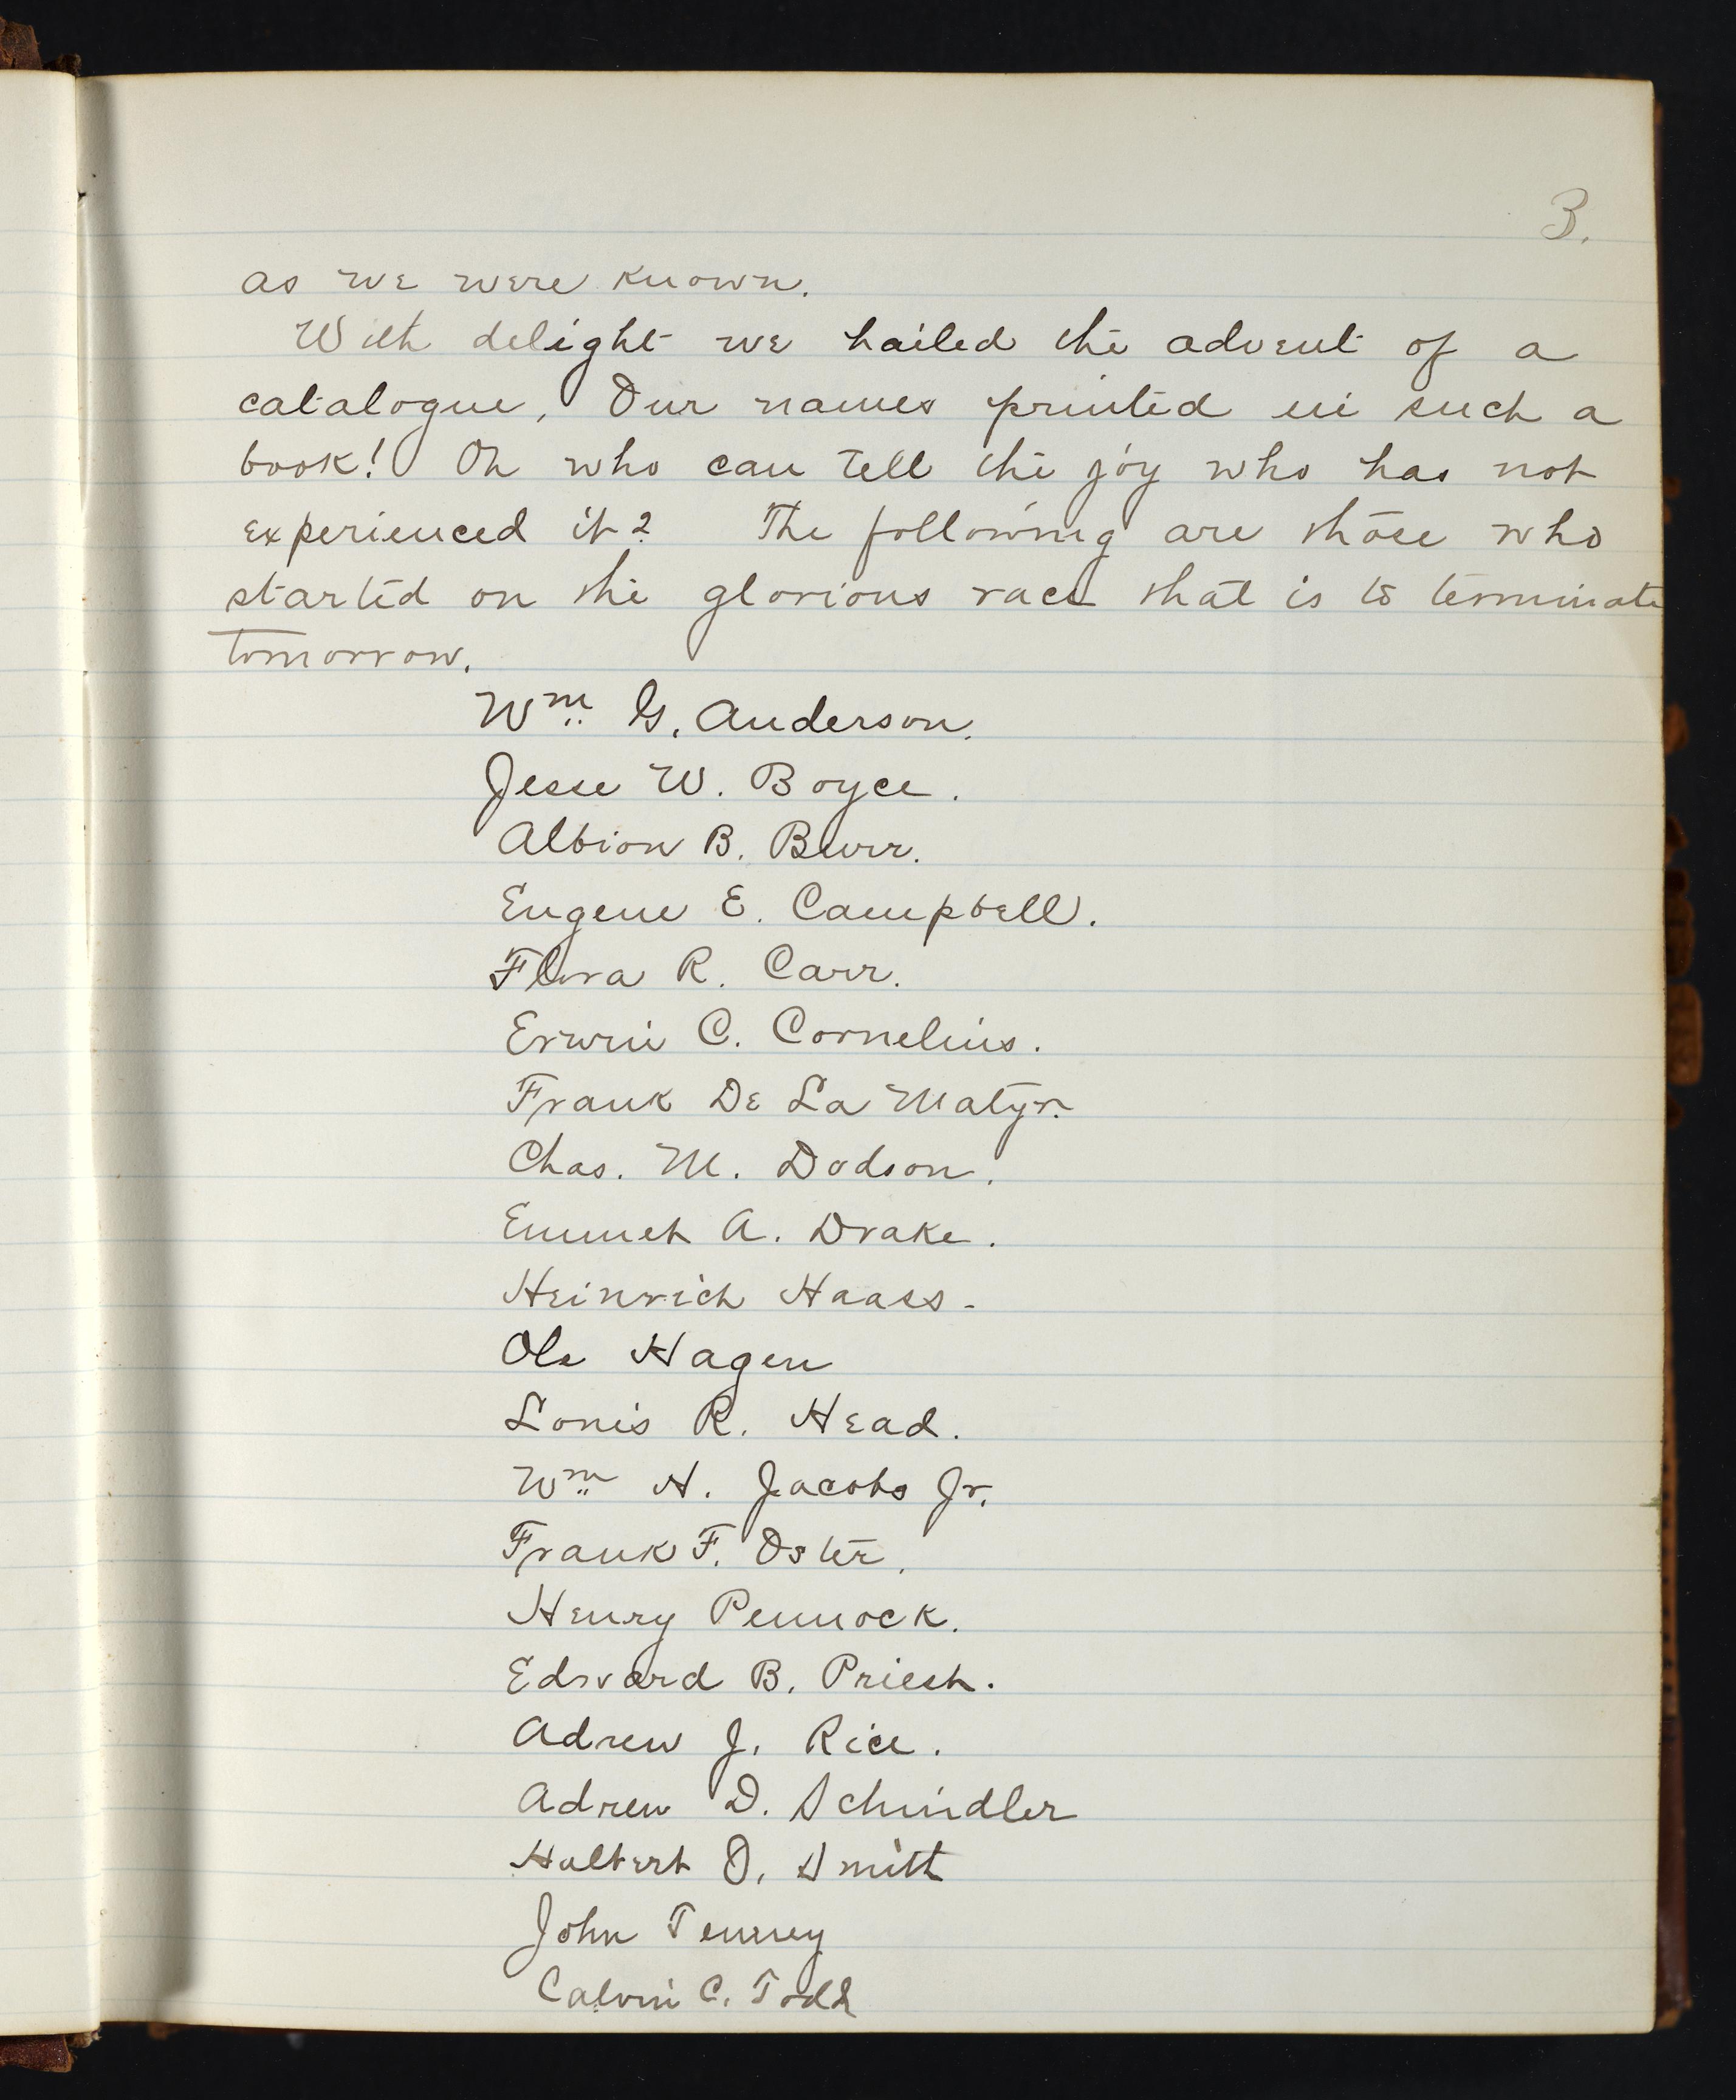 3.
as we were known.
With delight we hailed the advent of a
catalogue, Our names printed in such a
book! Oh who can tell the joy who has not
experienced it? The following are those who
started on the glorious race that is to terminate
tomorrow.
Wm. G. Anderson.
Jesse W. Boyce.
Albion B. Burr.
Eugene E. Campbell.
Flora R. Carr.
Erwin C. Cornelius.
Frank De La Matyr.
Chas. M. Dodson.
Emmet A. Drake.
Heinrich Haass.
Ole Hagen
Louis R. Head.
Wm. H. Jacobs Jr.
Frank F. Oster.
Henry Pennock.
Edward B. Priest.
Adrew J. Rice.
Adrew D. Schindler
Halbert O. Smith
John Tenney
Calvin C. Todd